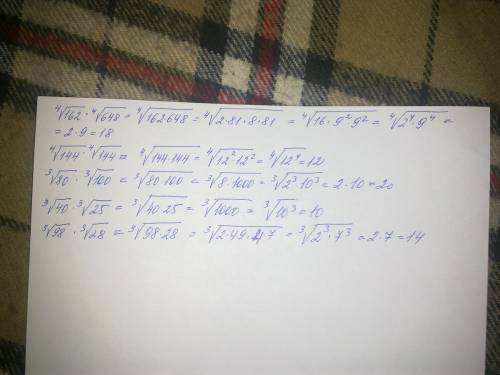 ⁴√162 · ⁴√648 = ⁴√162·648 = ⁴√2·81·8·81 = ⁴√16·9²·9² = ⁴√2⁴·9⁴ =
= 2·9 = 18
⁴√144 · ⁴√144 = ⁴√144·144 = ⁴√12²·12² = ⁴√12⁴ = 12
³√80 · ³√100 = ³√80·100 = ³√8·1000 = ³√2³·10³ = 2·10 = 20
³√40 · ³√25 = ³√40·25 = ³√1000 = ³√10³ = 10
³√98 · ³√28 = ³√98·28 = ³√2·49·4·7 = ³√2³·7³ = 2·7 = 14